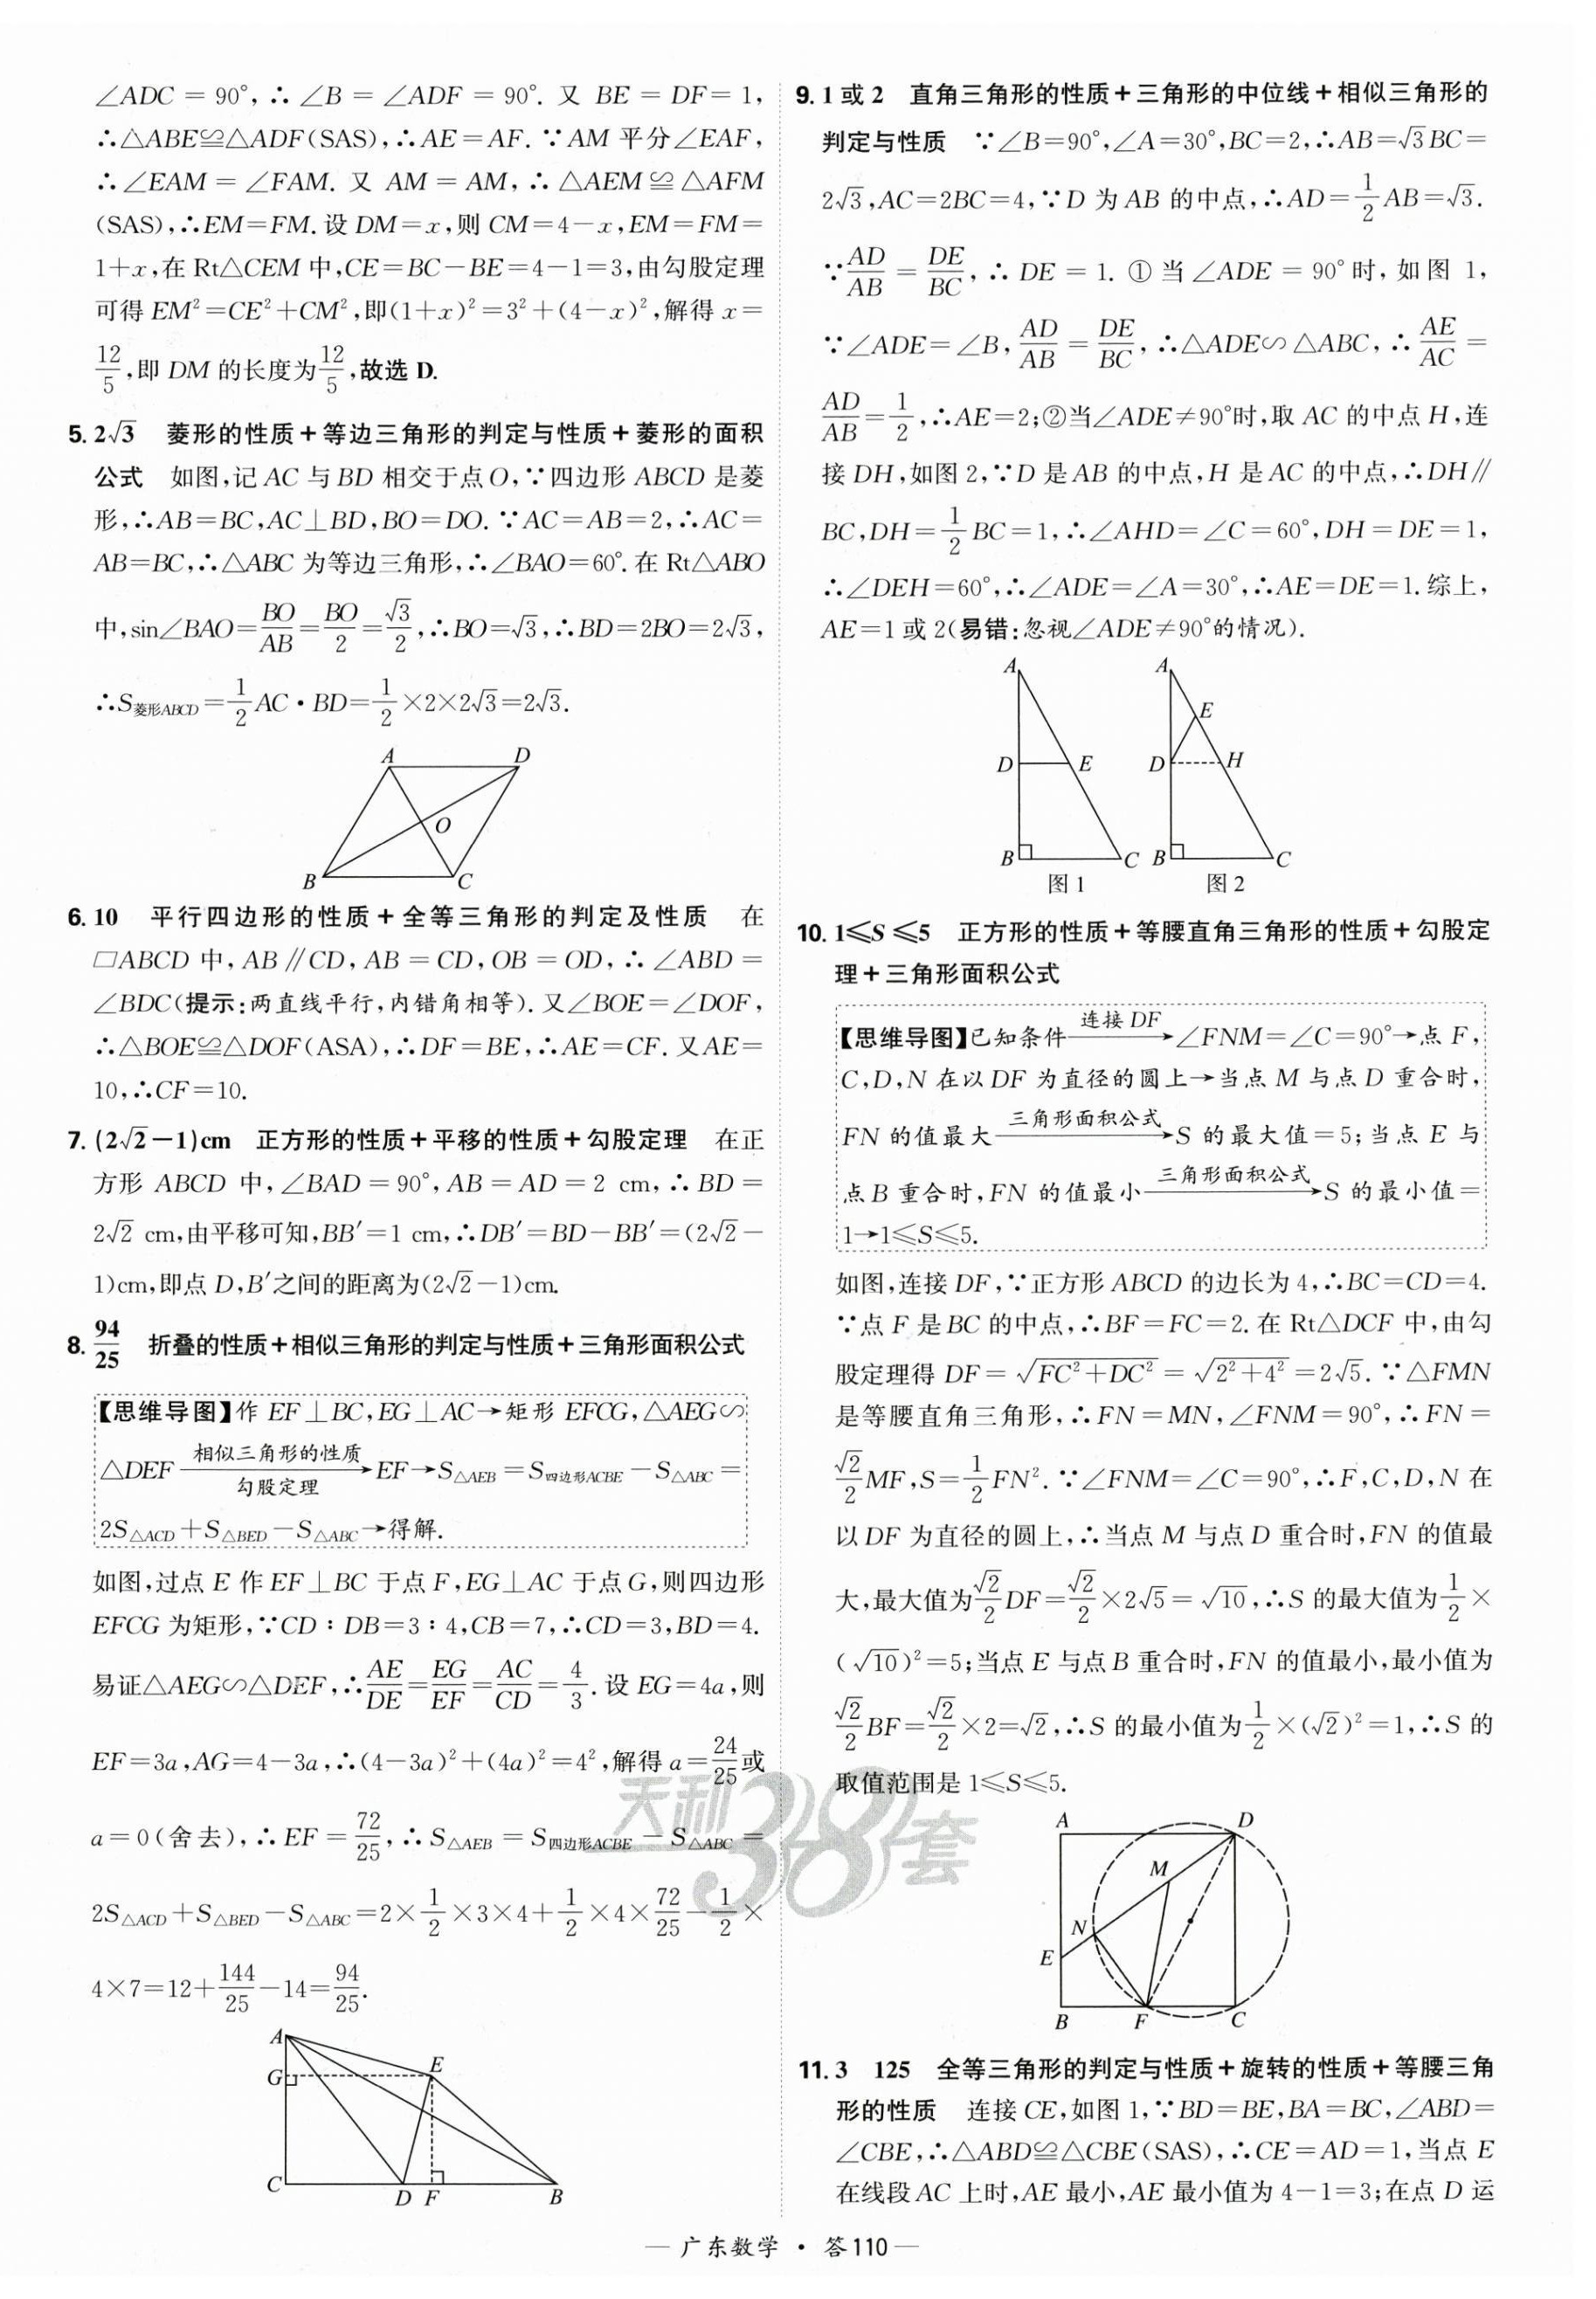 ∠ADC = 90°, ∴ ∠B = ∠ADF = 90°. 又 BE = DF= 1,
∴△ABE≌△ADF(SAS),∴AE=AF. ∵AM 平分∠EAF,
∴∠EAM = ∠FAM. 又 AM = AM, ∴ △AEM ≌ △AFM
(SAS),∴EM=FM. 设 DM=x,则 CM=4-x,EM=FM=
1+x,在 Rt△CEM 中,CE=BC-BE=4-1=3,由勾股定理
可得 EM²=CE²+CM²,即(1+x)²=3²+(4-x)²,解得 x=
12/5,即 DM 的长度为12/5,故选 D.
5. 2√3 菱形的性质+等边三角形的判定与性质+菱形的面积
公式 如图,记 AC 与 BD 相交于点 O,∵四边形 ABCD 是菱
形,∴AB=BC,AC⊥BD,BO=DO. ∵AC=AB=2,∴AC=
AB=BC,∴△ABC 为等边三角形,∴∠BAO=60°. 在 Rt△ABO
中,sin∠BAO=BO/AB=BO/2=√3/2,∴BO=√3,∴BD=2BO=2√3,
∴S菱形ABCD=1/2AC·BD=1/2×2×2√3=2√3.
A D
O
B C
6. 10 平行四边形的性质+全等三角形的判定及性质 在
□ABCD 中, AB∥CD, AB = CD, OB = OD, ∴ ∠ABD =
∠BDC(提示:两直线平行,内错角相等). 又∠BOE=∠DOF,
∴△BOE≌△DOF(ASA),∴DF=BE,∴AE=CF. 又AE=
10,∴CF=10.
7. (2√2-1)cm 正方形的性质+平移的性质+勾股定理 在正
方形 ABCD 中,∠BAD=90°,AB=AD=2 cm,∴BD=
2√2 cm,由平移可知,BB′=1 cm,∴DB′=BD-BB′=(2√2-
1)cm,即点 D,B′之间的距离为(2√2-1)cm.
8. 94/25 折叠的性质+相似三角形的判定与性质+三角形面积公式
【思维导图】作 EF⊥BC,EG⊥AC→矩形 EFCG,△AEG∽
△DEF 相似三角形的性质/勾股定理→EF→S△AEB=S四边形ACBE-S△ABC=
2S△ACD+S△BED-S△ABC→得解.
如图,过点 E 作 EF⊥BC 于点 F,EG⊥AC 于点 G,则四边形
EFCG 为矩形,∵CD∶DB=3∶4,CB=7,∴CD=3,BD=4.
易证△AEG∽△DEF,∴AE/DE=EG/EF=AC/CD=4/3. 设 EG=4a,则
EF=3a,AG=4-3a,∴(4-3a)²+(4a)²=4²,解得 a=24/25或
a=0(舍去),∴EF=72/25,∴S△AEB=S四边形ACBE-S△ABC=
2S△ACD+S△BED-S△ABC=2×1/2×3×4+1/2×4×72/25-1/2×
4×7=12+144/25-14=94/25.
A
E
G
C D F B
9. 1 或 2 直角三角形的性质+三角形的中位线+相似三角形的
判定与性质 ∵∠B=90°,∠A=30°,BC=2,∴AB=√3BC=
2√3,AC=2BC=4,∵D 为 AB 的中点,∴AD=1/2AB=√3.
∵AD/AB=DE/BC,∴DE=1. ①当∠ADE=90°时,如图 1,
∵∠ADE=∠B,AD/AB=DE/BC,∴△ADE∽△ABC,∴AE/AC=
AD/AB=1/2,∴AE=2;②当∠ADE≠90°时,取 AC 的中点 H,连
接 DH,如图 2,∵D 是 AB 的中点,H 是 AC 的中点,∴DH∥
BC,DH=1/2BC=1,∴∠AHD=∠C=60°,DH=DE=1,
∴∠DEH=60°,∴∠ADE=∠A=30°,∴AE=DE=1. 综上,
AE=1 或 2(易错:忽视∠ADE≠90°的情况).
A A
E
D E D H
B C B C
图 1 图 2
10. 1≤S≤5 正方形的性质+等腰直角三角形的性质+勾股定
理+三角形面积公式
【思维导图】已知条件 连接 DF→∠FNM=∠C=90°→点 F,
C,D,N 在以 DF 为直径的圆上→当点 M 与点 D 重合时,
FN 的值最大 三角形面积公式→S 的最大值=5;当点 E 与
点 B 重合时,FN 的值最小 三角形面积公式→S 的最小值=
1→1≤S≤5.
如图,连接 DF,∵正方形 ABCD 的边长为 4,∴BC=CD=4.
∵点 F 是 BC 的中点,∴BF=FC=2. 在 Rt△DCF 中,由勾
股定理得 DF=√(FC²+DC²)=√(2²+4²)=2√5. ∵△FMN
是等腰直角三角形,∴FN=MN,∠FNM=90°,∴FN=
√2/2MF,S=1/2FN². ∵∠FNM=∠C=90°,∴F,C,D,N 在
以 DF 为直径的圆上,∴当点 M 与点 D 重合时,FN 的值最
大,最大值为√2/2DF=√2/2×2√5=√10,∴S 的最大值为1/2×
(√10)²=5;当点 E 与点 B 重合时,FN 的值最小,最小值为
√2/2BF=√2/2×2=√2,∴S 的最小值为1/2×(√2)²=1,∴S 的
取值范围是 1≤S≤5.
A D
M
N
E
B F C
11. 3 125 全等三角形的判定与性质+旋转的性质+等腰三角
形的性质 连接 CE,如图 1,∵BD=BE,BA=BC,∠ABD=
∠CBE,∴△ABD≌△CBE(SAS),∴CE=AD=1,当点 E
在线段 AC 上时,AE 最小,AE 最小值为 4-1=3;在点 D 运
天利38套
— 广东数学 · 答110 —